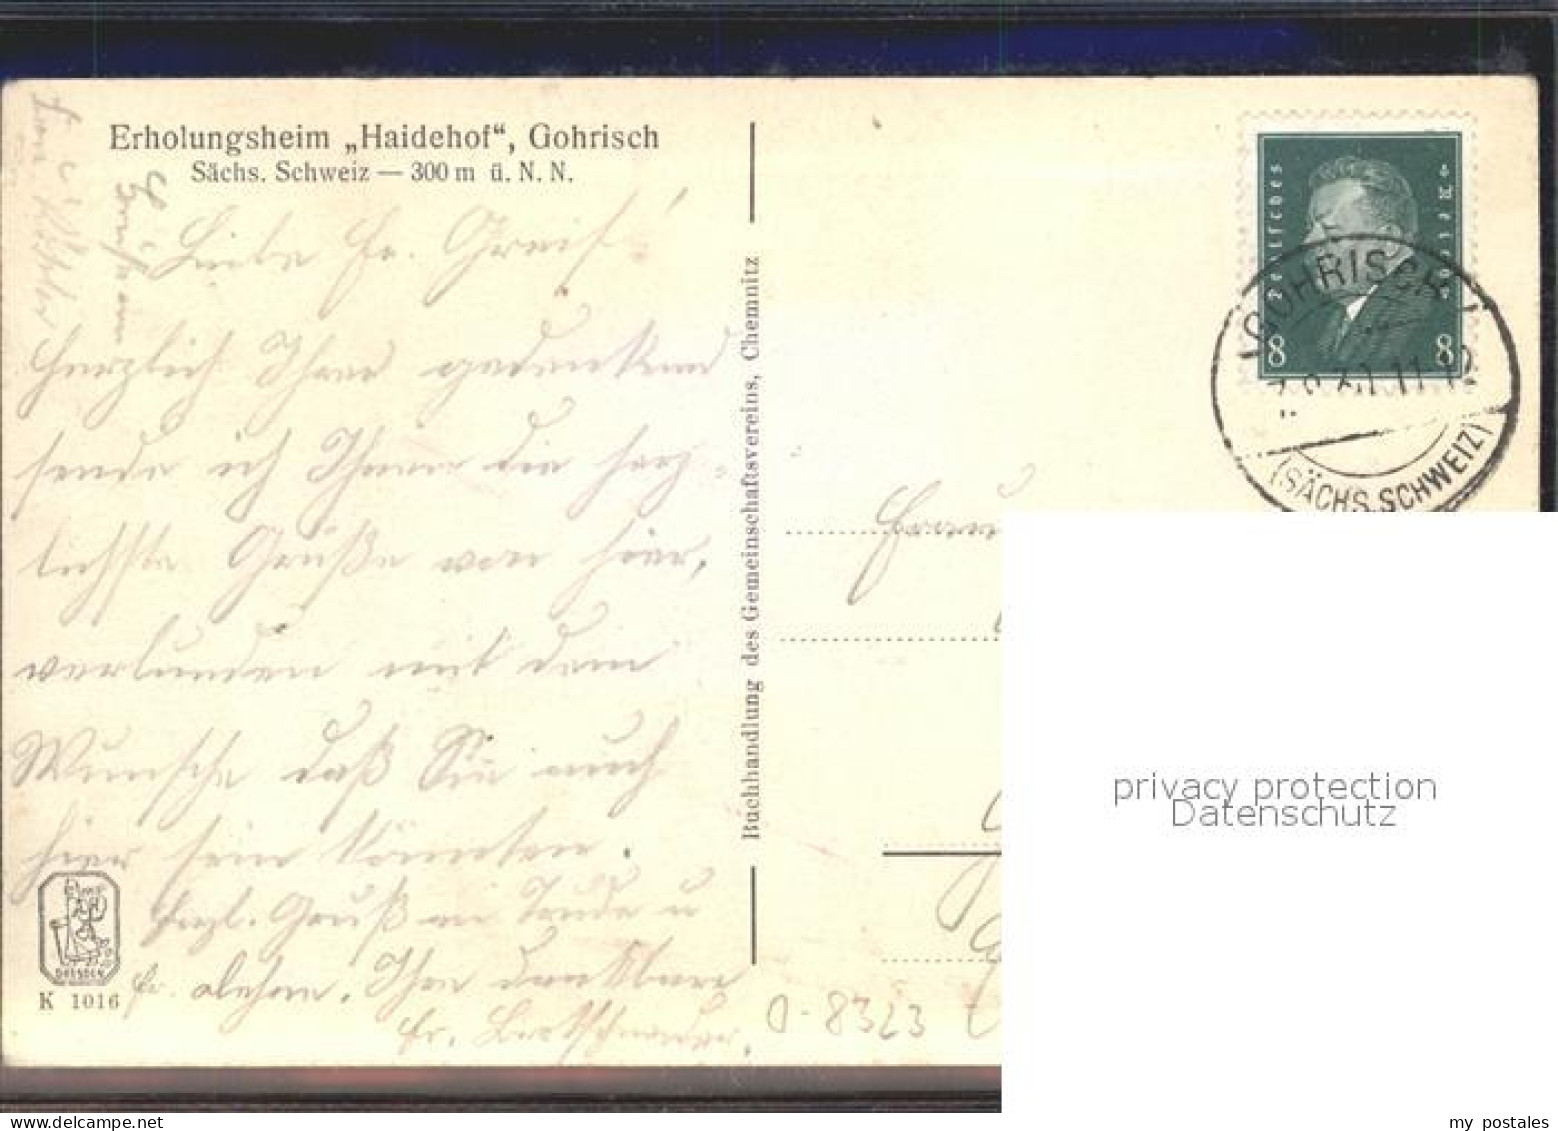 Erholungsheim „Haidehof“, Gohrisch
Sächs. Schweiz — 300 m ü. N. N.
Liebe Fr. Greif!
Herzlich Ihrer gedenkend
sende ich Ihnen die herz-
lichste Grüße von hier,
verbunden mit dem
Wunsche daß Sie auch
hier sein könnten.
herzl. Gruß an Trude u
Fr. Ihre dankbare
Fr. Bretschneider.
DRESDEN
K 1016
Buchhandlung des Gemeinschaftsvereins, Chemnitz
Deutsches Reich
8 8
GOHRISCH
(SÄCHS. SCHWEIZ)
Frau
0-8323
privacy protection
Datenschutz
my postales